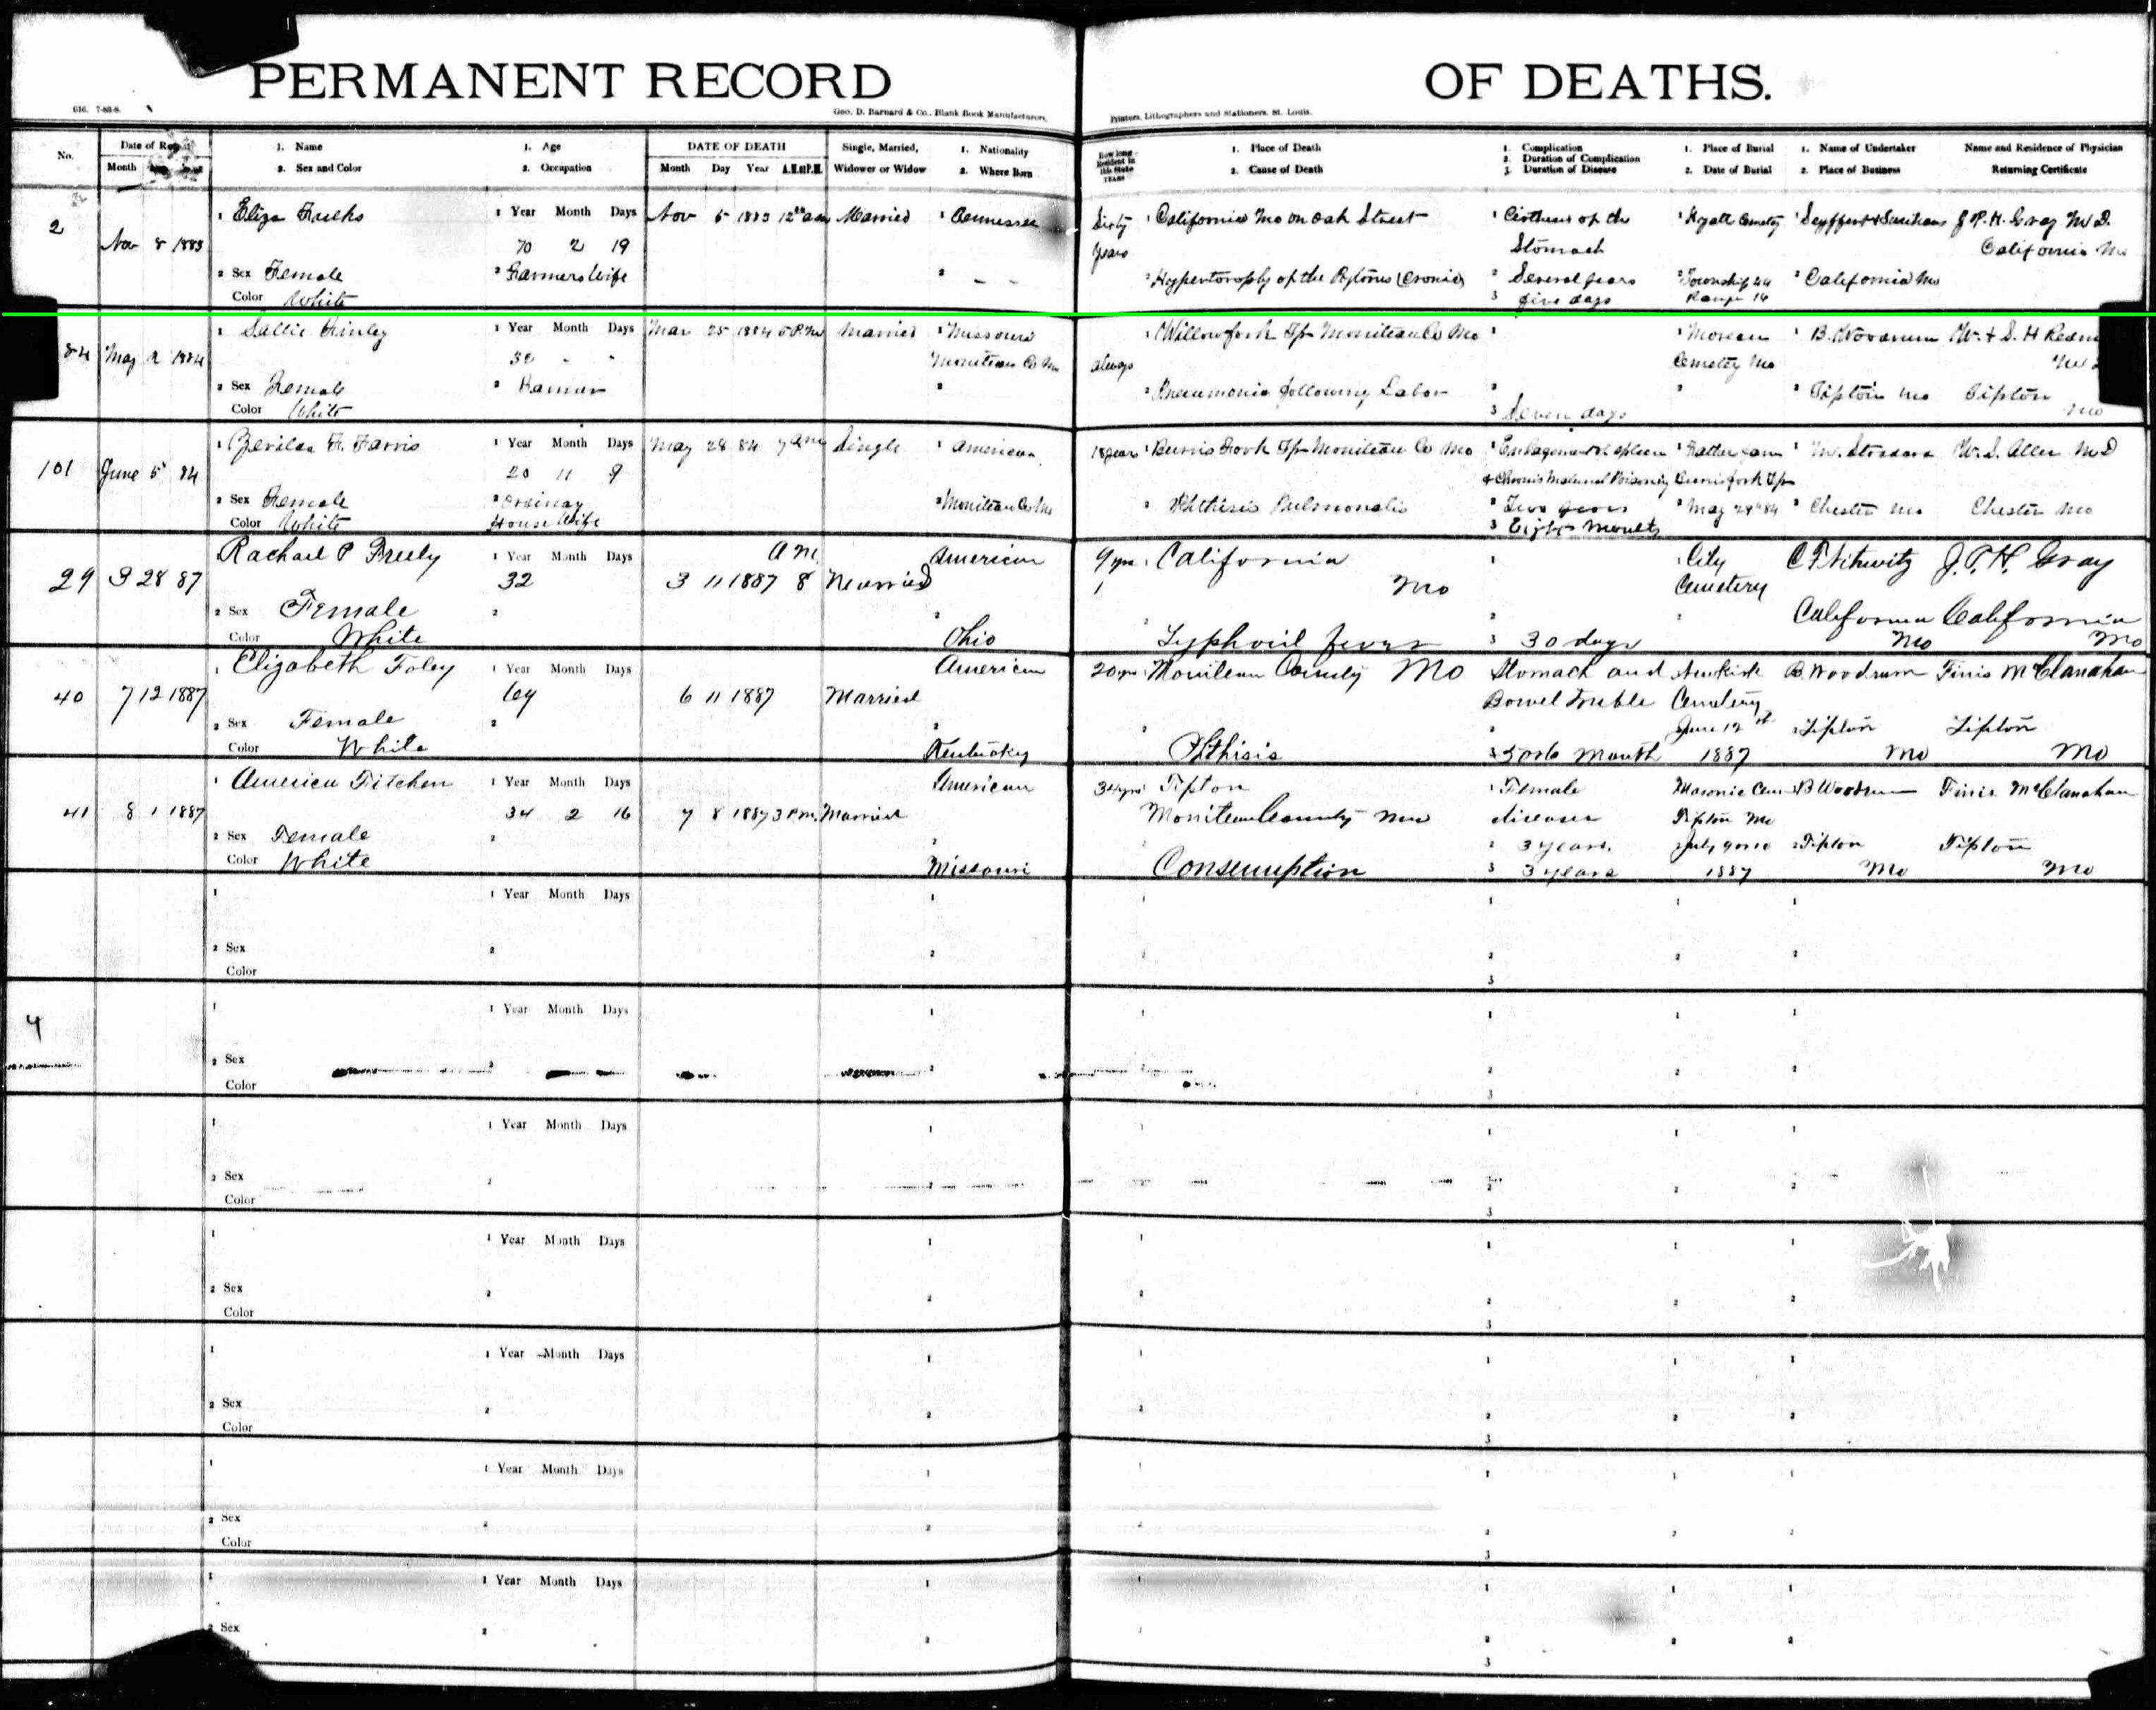 PERMANENT RECORD OF DEATHS.
616. 7-83-S. Geo. D. Barnard & Co., Blank Book Manufacturers, Printers, Lithographers and Stationers, St. Louis.
No. Date of Month 1. Name 2. Sex and Color 1. Age 2. Occupation DATE OF DEATH Month Day Year A.M. or P.M. Single, Married, Widower or Widow 1. Nationality 2. Where Born How long Resident in this State YEARS 1. Place of Death 2. Cause of Death 1. Complication 2. Duration of Complication 3. Duration of Disease 1. Place of Burial 2. Date of Burial 1. Name of Undertaker 2. Place of Business Name and Residence of Physician Returning Certificate
1 Eliza 1 Year Month Days Nov 5 1883 12 am Married 1 Tennessee Sixty 1 California Mo on Oak Street 1 of the 1 Hyatt Cemetery J. P. H. Gray M D.
2 Nov 8 1883 70 2 19 years Stomach California Mo
2 Sex Female 2 Farmers Wife 2 - - 2 of the Pylorus 2 Several years 2 Township 44 2 California Mo
Color White 3 five days Range 14
1 Sallie 1 Year Month Days Mar 25 1884 5 P.M Married 1 Missouri 1 Willowfork Tp Moniteau Co Mo 1 1 Moreau 1 B. Woodrum W. & S. H
84 May 2 1884 30 - - Moniteau Co Mo always Cemetery Mo
2 Sex Female 2 Farmer 2 2 Pneumonia following Labor 2 2 2 Tipton Mo Tipton
Color White 3 Seven days Mo
1 F. Farris 1 Year Month Days May 28 84 7 am Single 1 American 18 years 1 Burris Fork Tp Moniteau Co Mo 1 Enlargement of Spleen 1 Father farm 1 W. S. Allen M D
101 June 5 84 20 11 9 & Chronic Malarial Poisoning Burris fork Tp
2 Sex Female 2 Ordinary 2 Moniteau Co Mo 2 Phthisis Pulmonalis 2 Two years 2 May 29 84 2 Chester Mo Chester Mo
Color White House Wife 3 Eight Months
Rachael P Freely 1 Year Month Days A M American 9 yrs 1 California 1 1 City J. P. H. Gray
29 3 28 87 32 3 11 1887 8 Married Mo Cemetery
2 Sex Female 2 2 2 2 California California
Color White Ohio Typhoid fever 3 30 days Mo Mo
1 Elizabeth Foley 1 Year Month Days American 20 yrs Moniteau County Mo Stomach and Newkirk B. Woodrum Finis McClanahan
40 7 12 1887 64 6 11 1887 Married Bowel trouble Cemetery
2 Sex Female 2 2 2 2 June 12 2 Tipton Tipton
Color White Kentucky Phthisis 3 5 or 6 month 1887 Mo Mo
1 America Fitchen 1 Year Month Days American 34 yrs Tipton 1 Female Masonic Cem B Woodrum Finis McClanahan
41 8 1 1887 34 2 16 7 8 1887 3 P.m. Married Moniteau County Mo diseases Tipton Mo
2 Sex Female 2 2 2 3 years. July 2 Tipton Tipton
Color White Missouri Consumption 3 3 years 1887 Mo Mo
1 1 Year Month Days 1 1 1 1 1
2 Sex 2 2 2 2 2 2
Color 3
4 1 1 Year Month Days 1 1 1 1 1
2 Sex 2 2 2 2 2
Color 3
1 1 Year Month Days 1 1 1 1
2 Sex 2 2 2 2 2 2
Color 3
1 1 Year Month Days 1 1 1 1 1
2 Sex 2 2 2 2 2 2
Color 3
1 1 Year Month Days 1 1 1 1 1
2 Sex 2 2 2 2 2 2
Color 3
1 1 Year Month Days 1 1 1 1 1
2 Sex 2 2 2 2 2 2
Color 3
1 1 Year Month Days 1 1 1 1 1
2 Sex 2 2 2 2 2
3